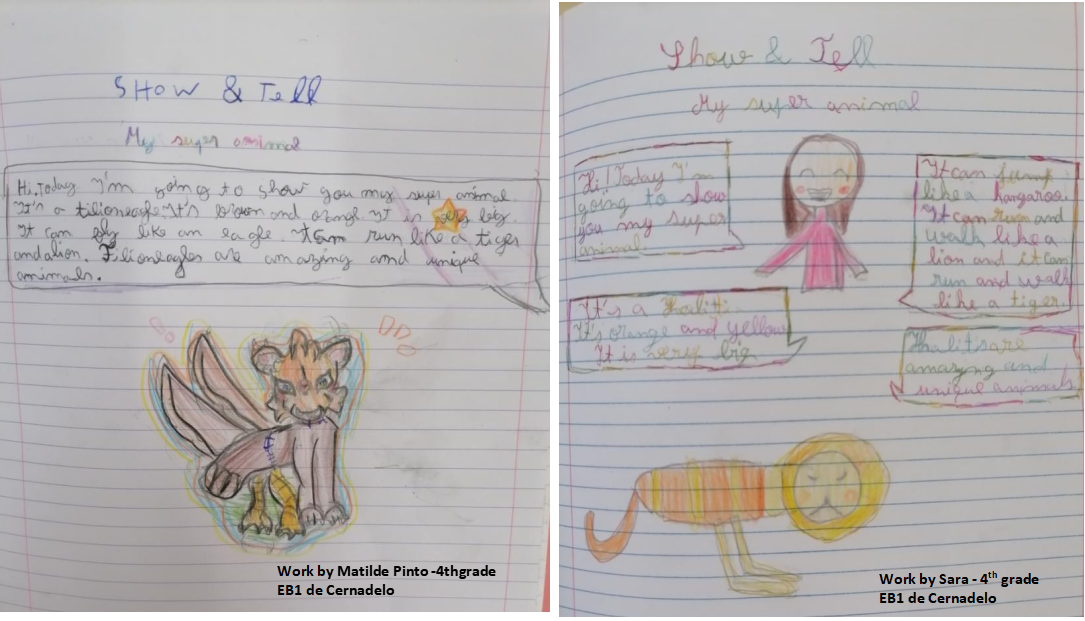 SHOW & Tell
My super animal
Hi. Today I'm going to show you my super animal
It's a tilioneagle. It's brown and orang. It is
It can fly like an eagle. It can run like a tiger
and a lion. Tilioneagles are amazing and unique
animals.
Work by Matilde Pinto -4thgrade
EB1 de Cernadelo
Show & Tell
My super animal
Hi! Today I'm
going to show
you my super
animal
It's a
It's orange and yellow
It is very big
It can jump
like a kangaroo.
It can run and
walk like a
lion and it can
run and walk
like a tiger.
are
amazing and
unique animals
Work by Sara - 4th grade
EB1 de Cernadelo